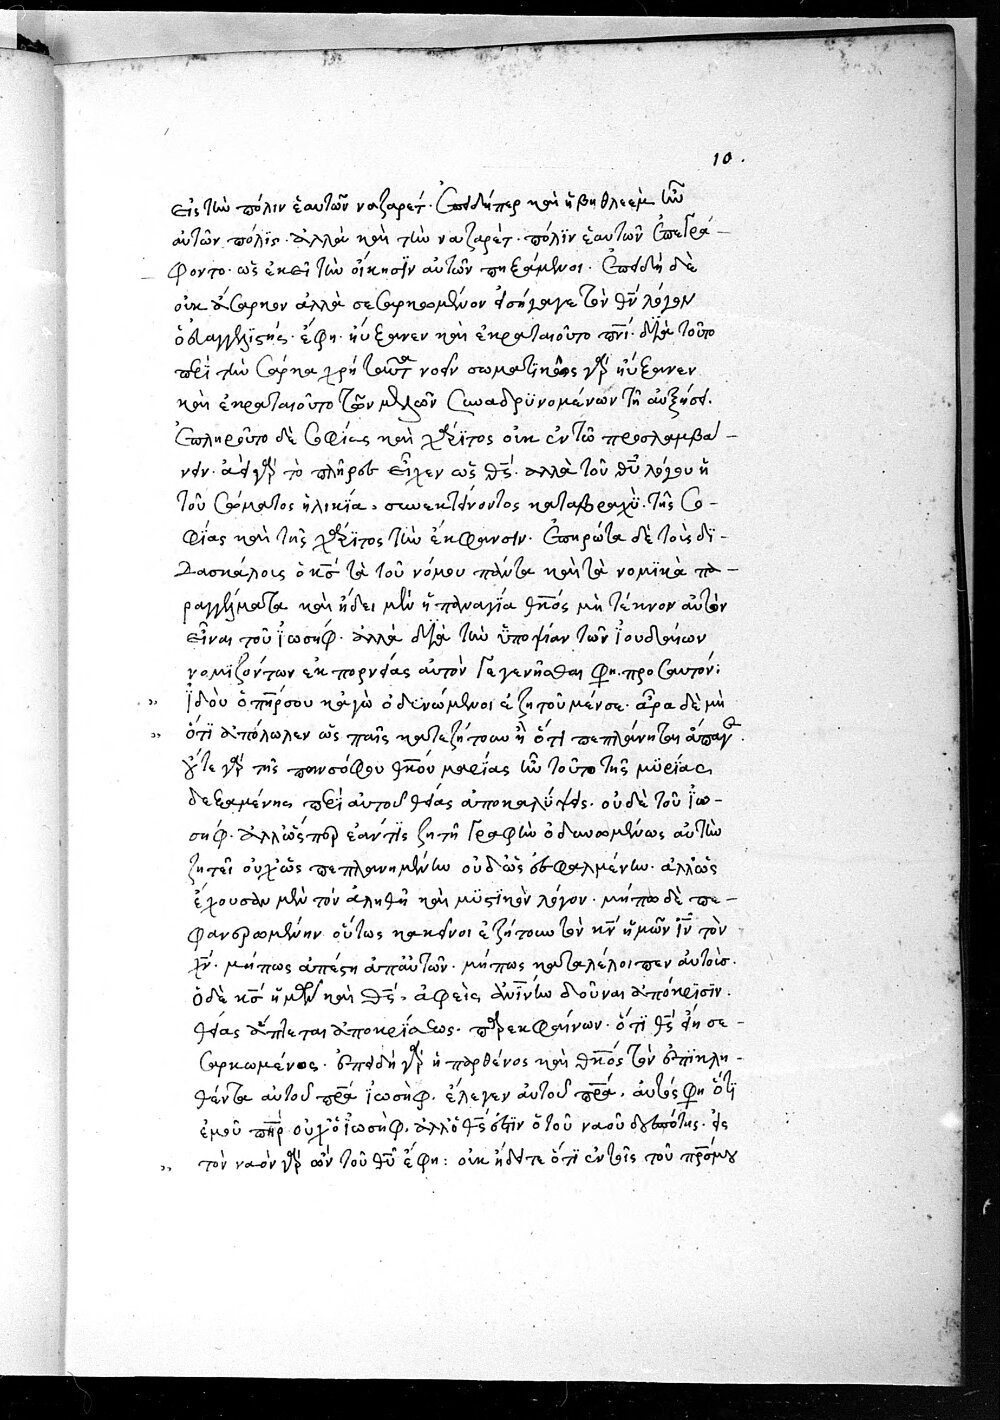 10.
εἰς τὴν πόλιν ἑαυτῶν ναζαρέτ. ἐπειδήπερ καὶ ἡ βηθλεὲμ ἦν
αὐτῶν πόλϊς. ἀλλὰ καὶ τὴν ναζαρὲτ. πόλϊν ἑαυτῶν ἐπεγρά-
φοντο. ὡς ἐκεῖ τὴν οἴκησϊν αὐτῶν πηξάμενοι. ἐπειδὴ δὲ
οὐκ ἄσαρκον ἀλλὰ σεσαρκωμένον εἰσήγαγε τὸν θν̅ λόγον
ὁ εὐαγγελϊστής. ἔφη. ηὔξανεν καὶ ἐκραταιοῦτο πνι̅. δϊὰ τοῦτο
περὶ τὴν σάρκα χρὴ ταῦτα νοεῖν σωματικῶς γὰρ ηὔξανεν
καὶ ἐκραταιοῦτο τῶν μελῶν συναδρϋνομένων τῆ αὐξήσει.
ἐπληροῦτο δὲ σοφίας καὶ χάριτος οὐκ ἐν τῶ προσλαμβά-
νειν. ἀεὶ γὰρ τὸ πλῆρες εἶχεν ὡς θς̅. ἀλλὰ τοῦ θυ̅ λόγου ἡ
τοῦ σώματος ἡλικϊία, συνεκτείνοντος καταβραχὺ. τῆς σο-
φΐας καὶ τῆς χάριτος τὴν ἔκφανσιν. ἐπηρώτα δὲ τοὺς δϊ-
δασκάλους ὁ κς̅ τὰ τοῦ νόμου πάντα καὶ τὰ νομϊκὰ πα-
ραγγέλματα καὶ ἤδει μὲν ἡ παναγΐα θκος̅ μὴ τέκνον αὐτὸν
εἶναι τοῦ ϊωσὴφ. ἀλλὰ δϊὰ τὴν ὑποψίαν τῶν ϊουδαίων
νομϊζόντων ἐκ πορνείας αὐτὸν γεγενῆσθαι φη. προσαυτόν:
ϊδοὺ ὁ πηρ̅ σου κἀγὼ ὀδϋνώμενοι ἐζητοῦμέν σε. ἆρα δὲ μὴ
ὅτϊ ἀπόλωλεν ὡς παῖς κατεζήτουν ἢ ὅτι πεπλάνηται ἄπαγε.
οὔτε γὰρ τῆς πανσόφου θκου̅ μαρίας ἦν τοῦτο τῆς μϋρίας
δεξαμένης περὶ αὐτοῦ θείας ἀποκαλύψεις. οὐδὲ τοῦ ϊω-
σὴφ. ἀλλ' ὥσπερ ἐάν τϊς ζητῆ γραφὴν ὀδυνωμένως αὐτὴν
ζητεῖ οὐχ' ὡς πεπλανημένην οὐδ' ὡς ἐσφαλμένην. ἀλλ' ὡς
ἔχουσαν μὲν τὸν ἀληθῆ καὶ μϋστϊκὸν λόγον. μήπω δὲ πε-
φανερωμένην οὕτως κακεῖνοι ἐζήτουν τὸν κν̅ ἡμῶν ιν̅ τὸν
χν̅. μήπως ἀπέστη ἀπ' αὐτῶν. μήπως καταλέλοιπεν αὐτούς.
ὁ δὲ κς̅ ἡμῶν καὶ θς̅, ἀφεὶς ἀνινην̅ δοῦναι ἀπόκρϊσϊν.
θείας ἅπτεται ἀποκρίσεως. παρεκφαίνων. ὅτϊ θς̅ εἴη σε-
σαρκωμένος. ἐπειδὴ γὰρ ἡ παρθένος καὶ θκος̅ τὸν ἐπϊκλη-
θέντα αὐτοῦ πρα̅ ϊωσὴφ, ἔλεγεν αὐτοῦ πρα̅, αὐτός φη ὅτϊ
ἐμοῦ πηρ̅ οὐχ' ὁ ϊωσὴφ, ἀλλ' ὁ θς̅ ἐστϊν ὁ τοῦ ναοῦ δεσπότης. εἰς
τὸν ναὸν γὰρ ὢν τοῦ θυ̅ ἔφη: οὐκ ἤδειτε ὅτϊ ἐν τοῖς τοῦ πρς̅ μου